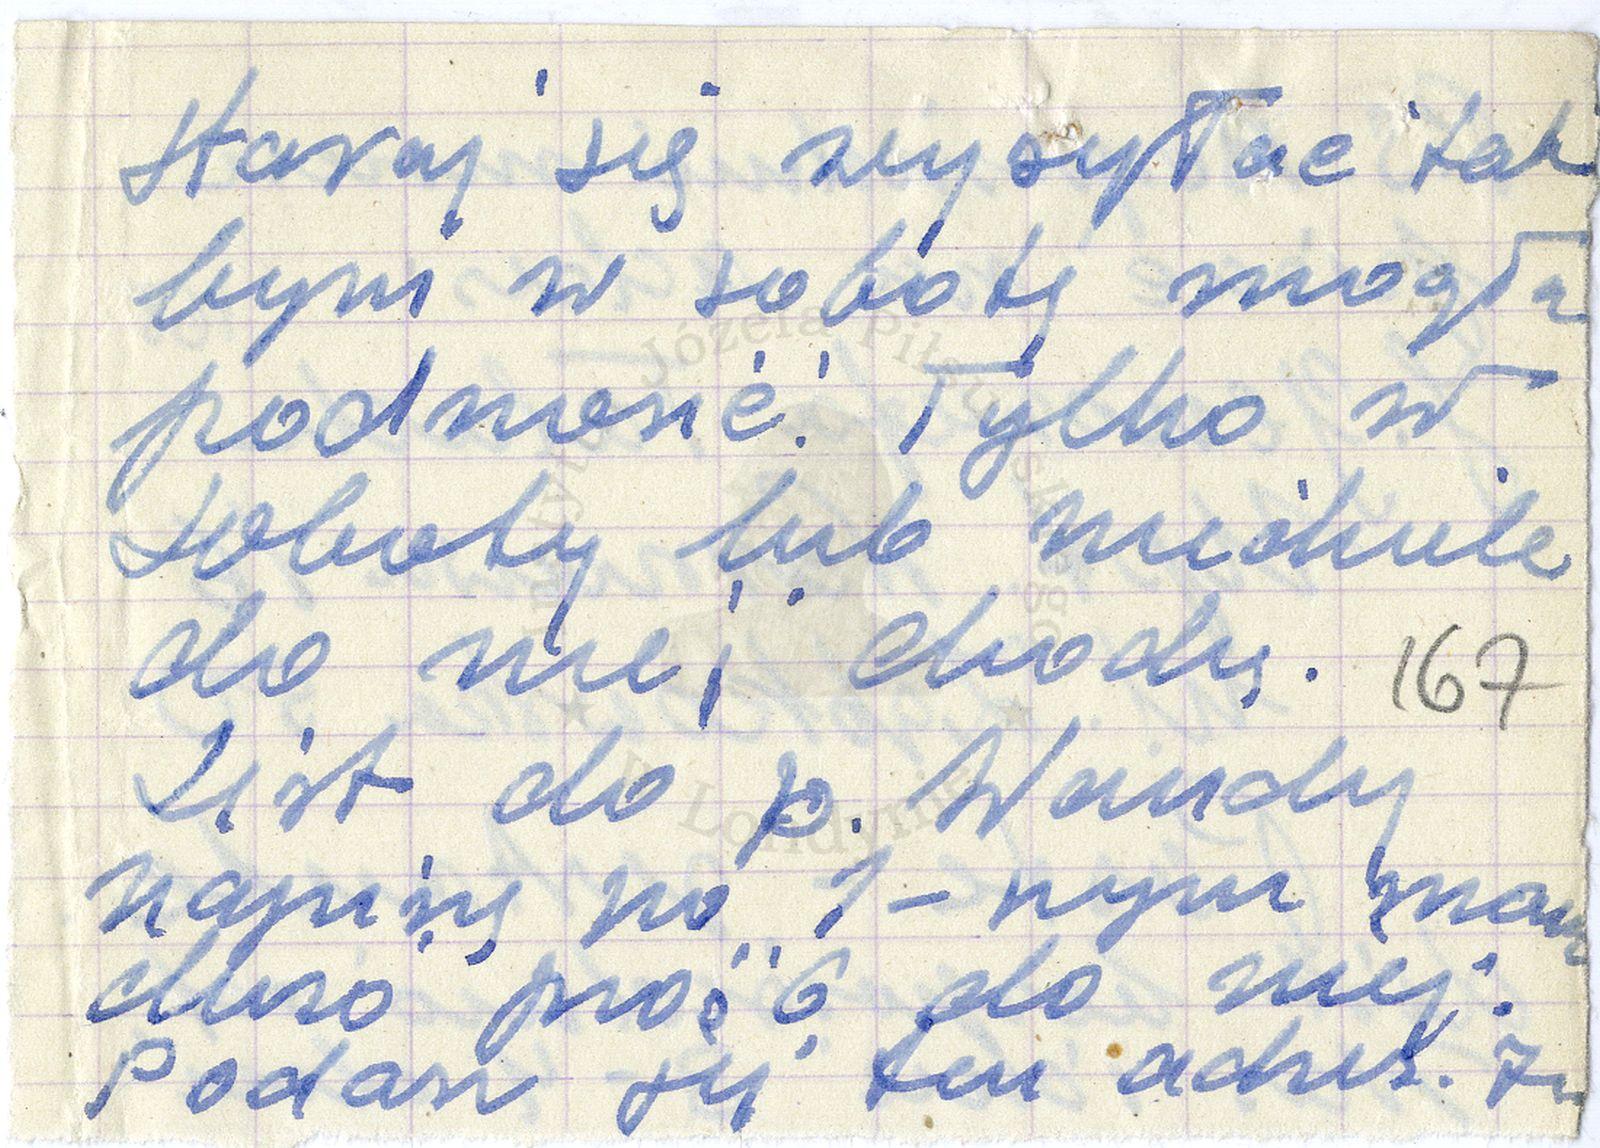 Staraj się wysyłać tak
bym w sobotę mogła
podnieść. Tylko w
soboty lub niedziele
do niej chodzę.
167
List do p. Wandy
napiszę po 1-nym mam
dużo próśb do niej.
Podasz jej ten adres.
Józefa Piłsudskiego
w Londynie